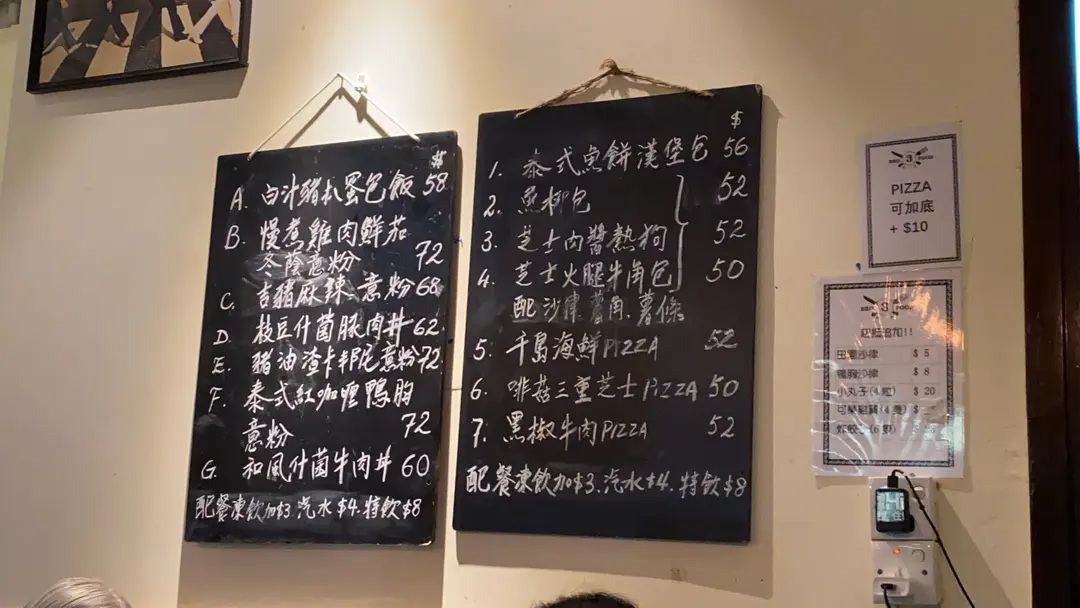 $
A. 白汁豬扒蛋包飯 58
B. 慢煮雞肉鮮茄
冬蔭意粉 72
C. 吉豬麻辣意粉 68
D. 枝豆什菌豚肉丼 62
E. 豬油渣卡邦尼意粉 72
F. 泰式紅咖喱鴨胸
意粉 72
G. 和風什菌牛肉丼 60
配餐凍飲加$3.汽水$4.特飲$8
$
1. 泰式魚餅漢堡包 56
2. 魚柳包 52
3. 芝士肉醬熱狗 52
4. 芝士火腿牛角包 50
配沙律薯角.薯條
5. 千島海鮮PIZZA 52
6. 啡菇三重芝士PIZZA 50
7. 黑椒牛肉PIZZA 52
配餐凍飲加$3.汽水$4.特飲$8
3 FOOD
PIZZA
可加底
+ $10
3 FOOD
追加!!
田園沙律 $ 5
鴨胸沙律 $ 8
小丸子(4粒) $ 20
可樂雞翼(4隻) $
炸餃子(6隻) $